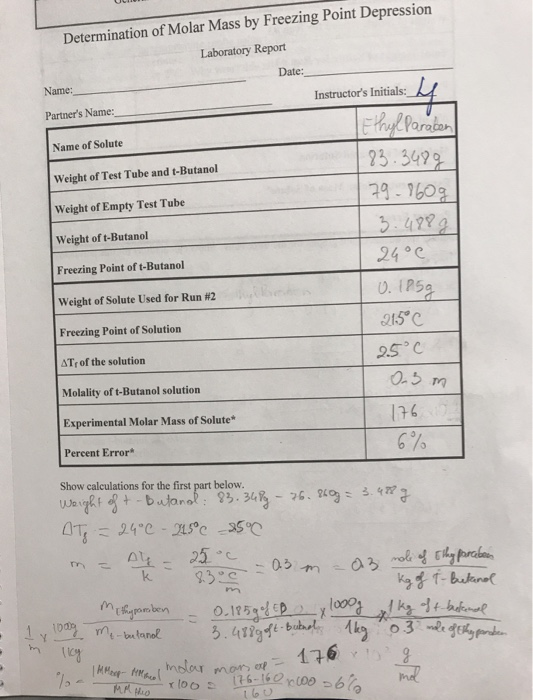 Determination of Molar Mass by Freezing Point Depression
Laboratory Report
Name: Date:
Partner's Name: Instructor's Initials:
Name of Solute Ethyl Paraben
Weight of Test Tube and t-Butanol 83.348g
Weight of Empty Test Tube 79.860g
Weight of t-Butanol 3.488g
Freezing Point of t-Butanol 24°C
Weight of Solute Used for Run #2 0.185g
Freezing Point of Solution 21.5°C
ΔTf of the solution 2.5°C
Molality of t-Butanol solution 0.3 m
Experimental Molar Mass of Solute* 176
Percent Error* 6%
Show calculations for the first part below.
Weight of t-Butanol: 83.348g - 76.860g = 3.488g
ΔTf = 24°C - 21.5°C =
m = ΔTf/k = 2.5 °C / 8.3 °C/m = 0.3 m = 0.3 mole of Ethyl paraben / kg of T-Butanol
1/m x 1000g/1kg m Ethyl paraben / m t-butanol = 0.185g of EP / 3.488g of t-butanol x 1000g/1kg x 1kg of t-butanol / 0.3 mole of Ethyl paraben
molar mass = 176 g/mol
x100 = 176-166/166 x100 = 6%